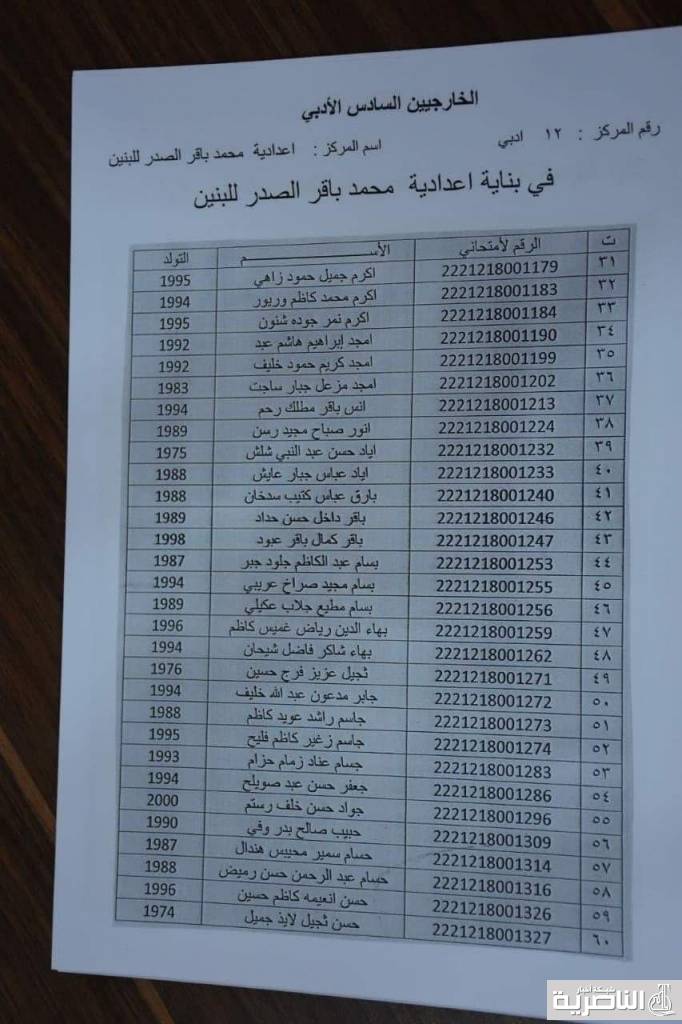 الخارجيين السادس الأدبي
رقم المركز : ١٢ ادبي اسم المركز : اعدادية محمد باقر الصدر للبنين
في بناية اعدادية محمد باقر الصدر للبنين
ت الرقم لأمتحاني الأســـــــــم التولد
٣١ 2221218001179 اكرم جميل حمود زاهي 1995
٣٢ 2221218001183 اكرم محمد كاظم وريور 1994
٣٣ 2221218001184 اكرم نمر جوده شنون 1995
٣٤ 2221218001190 امجد إبراهيم هاشم عبد 1992
٣٥ 2221218001199 امجد كريم حمود خليف 1992
٣٦ 2221218001202 امجد مزعل جبار ساجت 1983
٣٧ 2221218001213 انس باقر مطلك رحم 1994
٣٨ 2221218001224 انور صباح مجيد رسن 1989
٣٩ 2221218001232 اياد حسن عبد النبي شلش 1975
٤٠ 2221218001233 اياد عباس جبار عايش 1988
٤١ 2221218001240 بارق عباس كتيب سدخان 1988
٤٢ 2221218001246 باقر داخل حسن حداد 1989
٤٣ 2221218001247 باقر كمال باقر عبود 1998
٤٤ 2221218001253 بسام عبد الكاظم جلود جبر 1987
٤٥ 2221218001255 بسام مجيد صراخ عريبي 1994
٤٦ 2221218001256 بسام مطيع جلاب عكيلي 1989
٤٧ 2221218001259 بهاء الدين رياض غميس كاظم 1996
٤٨ 2221218001262 بهاء شاكر فاضل شيحان 1994
٤٩ 2221218001271 ثجيل عزيز فرج حسين 1976
٥٠ 2221218001272 جابر مدعون عبد الله خليف 1994
٥١ 2221218001273 جاسم راشد عويد كاظم 1988
٥٢ 2221218001274 جاسم زغير كاظم فليح 1995
٥٣ 2221218001283 جسام عناد زمام حزام 1993
٥٤ 2221218001286 جعفر حسن عبد صويلح 1994
٥٥ 2221218001296 جواد حسن خلف رستم 2000
٥٦ 2221218001309 حبيب صالح بدر وفي 1990
٥٧ 2221218001314 حسام سمير محيبس هندال 1987
٥٨ 2221218001316 حسام عبد الرحمن حسن رميض 1988
٥٩ 2221218001326 حسن انعيمه كاظم حسين 1996
٦٠ 2221218001327 حسن ثجيل لايذ جميل 1974
شبكة أخبار
الناصرية